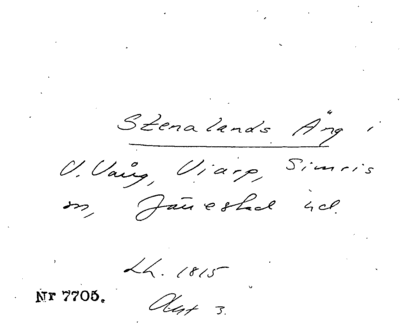 Stenalands Äng i
V. Vång, Viarp, Simris
m, Järrestad hd.
Lh. 1815
Akt 3.
Nr 7705.